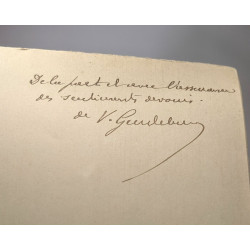 De la part et avec l'assurance
des sentiments dévoués.
de V.